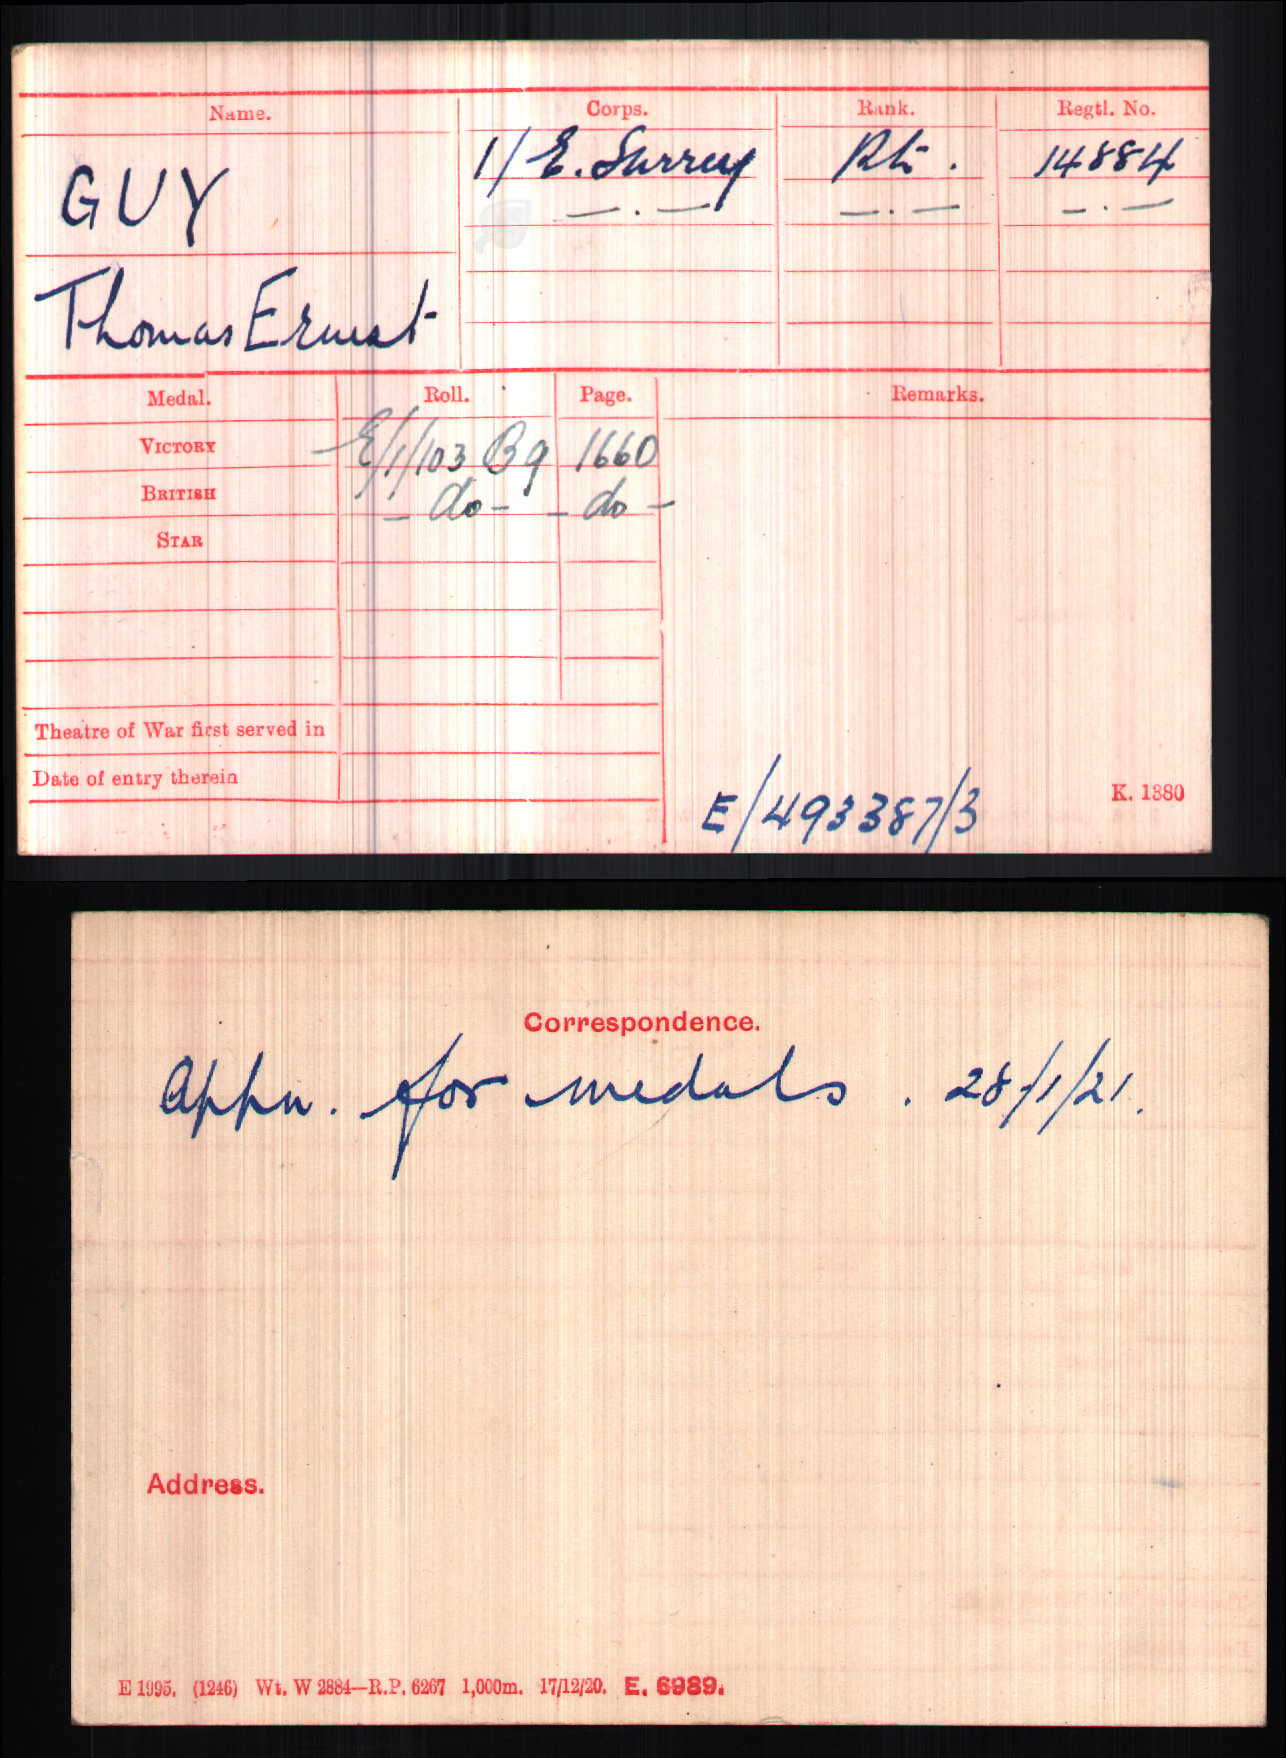 Name. Corps. Rank. Regtl. No.
GUY 1/E. Surrey Pte. 14884
— . — — . — — . —
Thomas Ernest
Medal. Roll. Page. Remarks.
VICTORY E/1/103 B9 1660
BRITISH - do - - do -
STAR
Theatre of War first served in
Date of entry therein
E/493387/3 K. 1380
Correspondence.
Appn. for medals. 28/1/21.
Address.
E 1995. (1246) Wt. W 2884—R.P. 6267 1,000m. 17/12/20. E. 6989.